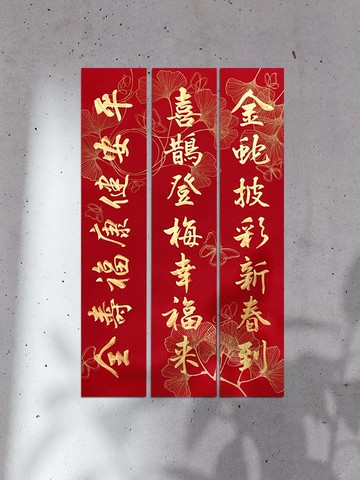 金蛇披彩新春到
喜鵲登梅幸福来
平安健康福壽全